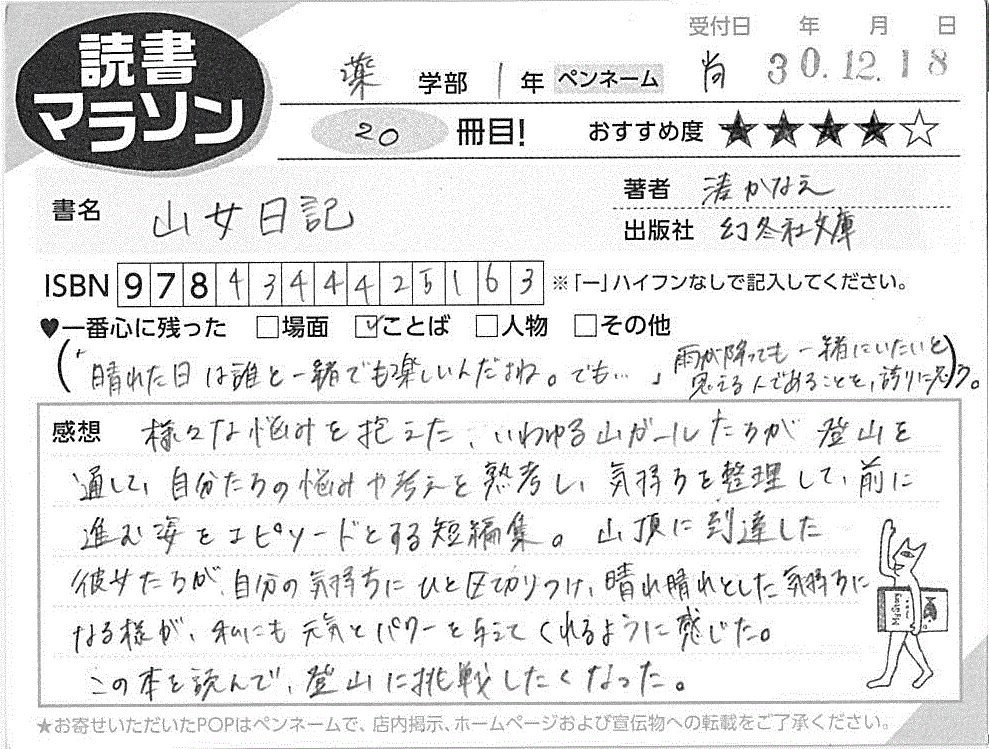 読書
マラソン
受付日 年 月 日
30.12.18
薬 学部 1 年 ペンネーム 尚
20 冊目! おすすめ度 ★★★★☆
書名 山女日記
著者 湊かなえ
出版社 幻冬社文庫
ISBN 9784344425163 ※「ー」ハイフンなしで記入してください。
♥一番心に残った □場面 ☑ことば □人物 □その他
(「晴れた日は誰と一緒でも楽しいんだよね。でも…」雨が降っても一緒にいたいと
思える人であることを、誇りに思う。)
感想 様々な悩みを抱えた、いわゆる山ガールたちが登山を
通して、自分たちの悩みや考えを熟考し、気持ちを整理して、前に
進む姿をエピソードとする短編集。山頂に到達した
彼女たちが、自分の気持ちにひと区切りつけ、晴れ晴れとした気持ちに
なる様が、私にも元気とパワーを与えてくれるように感じた。
この本を読んで、登山に挑戦したくなった。
★お寄せいただいたPOPはペンネームで、店内掲示、ホームページおよび宣伝物への転載をご了承ください。